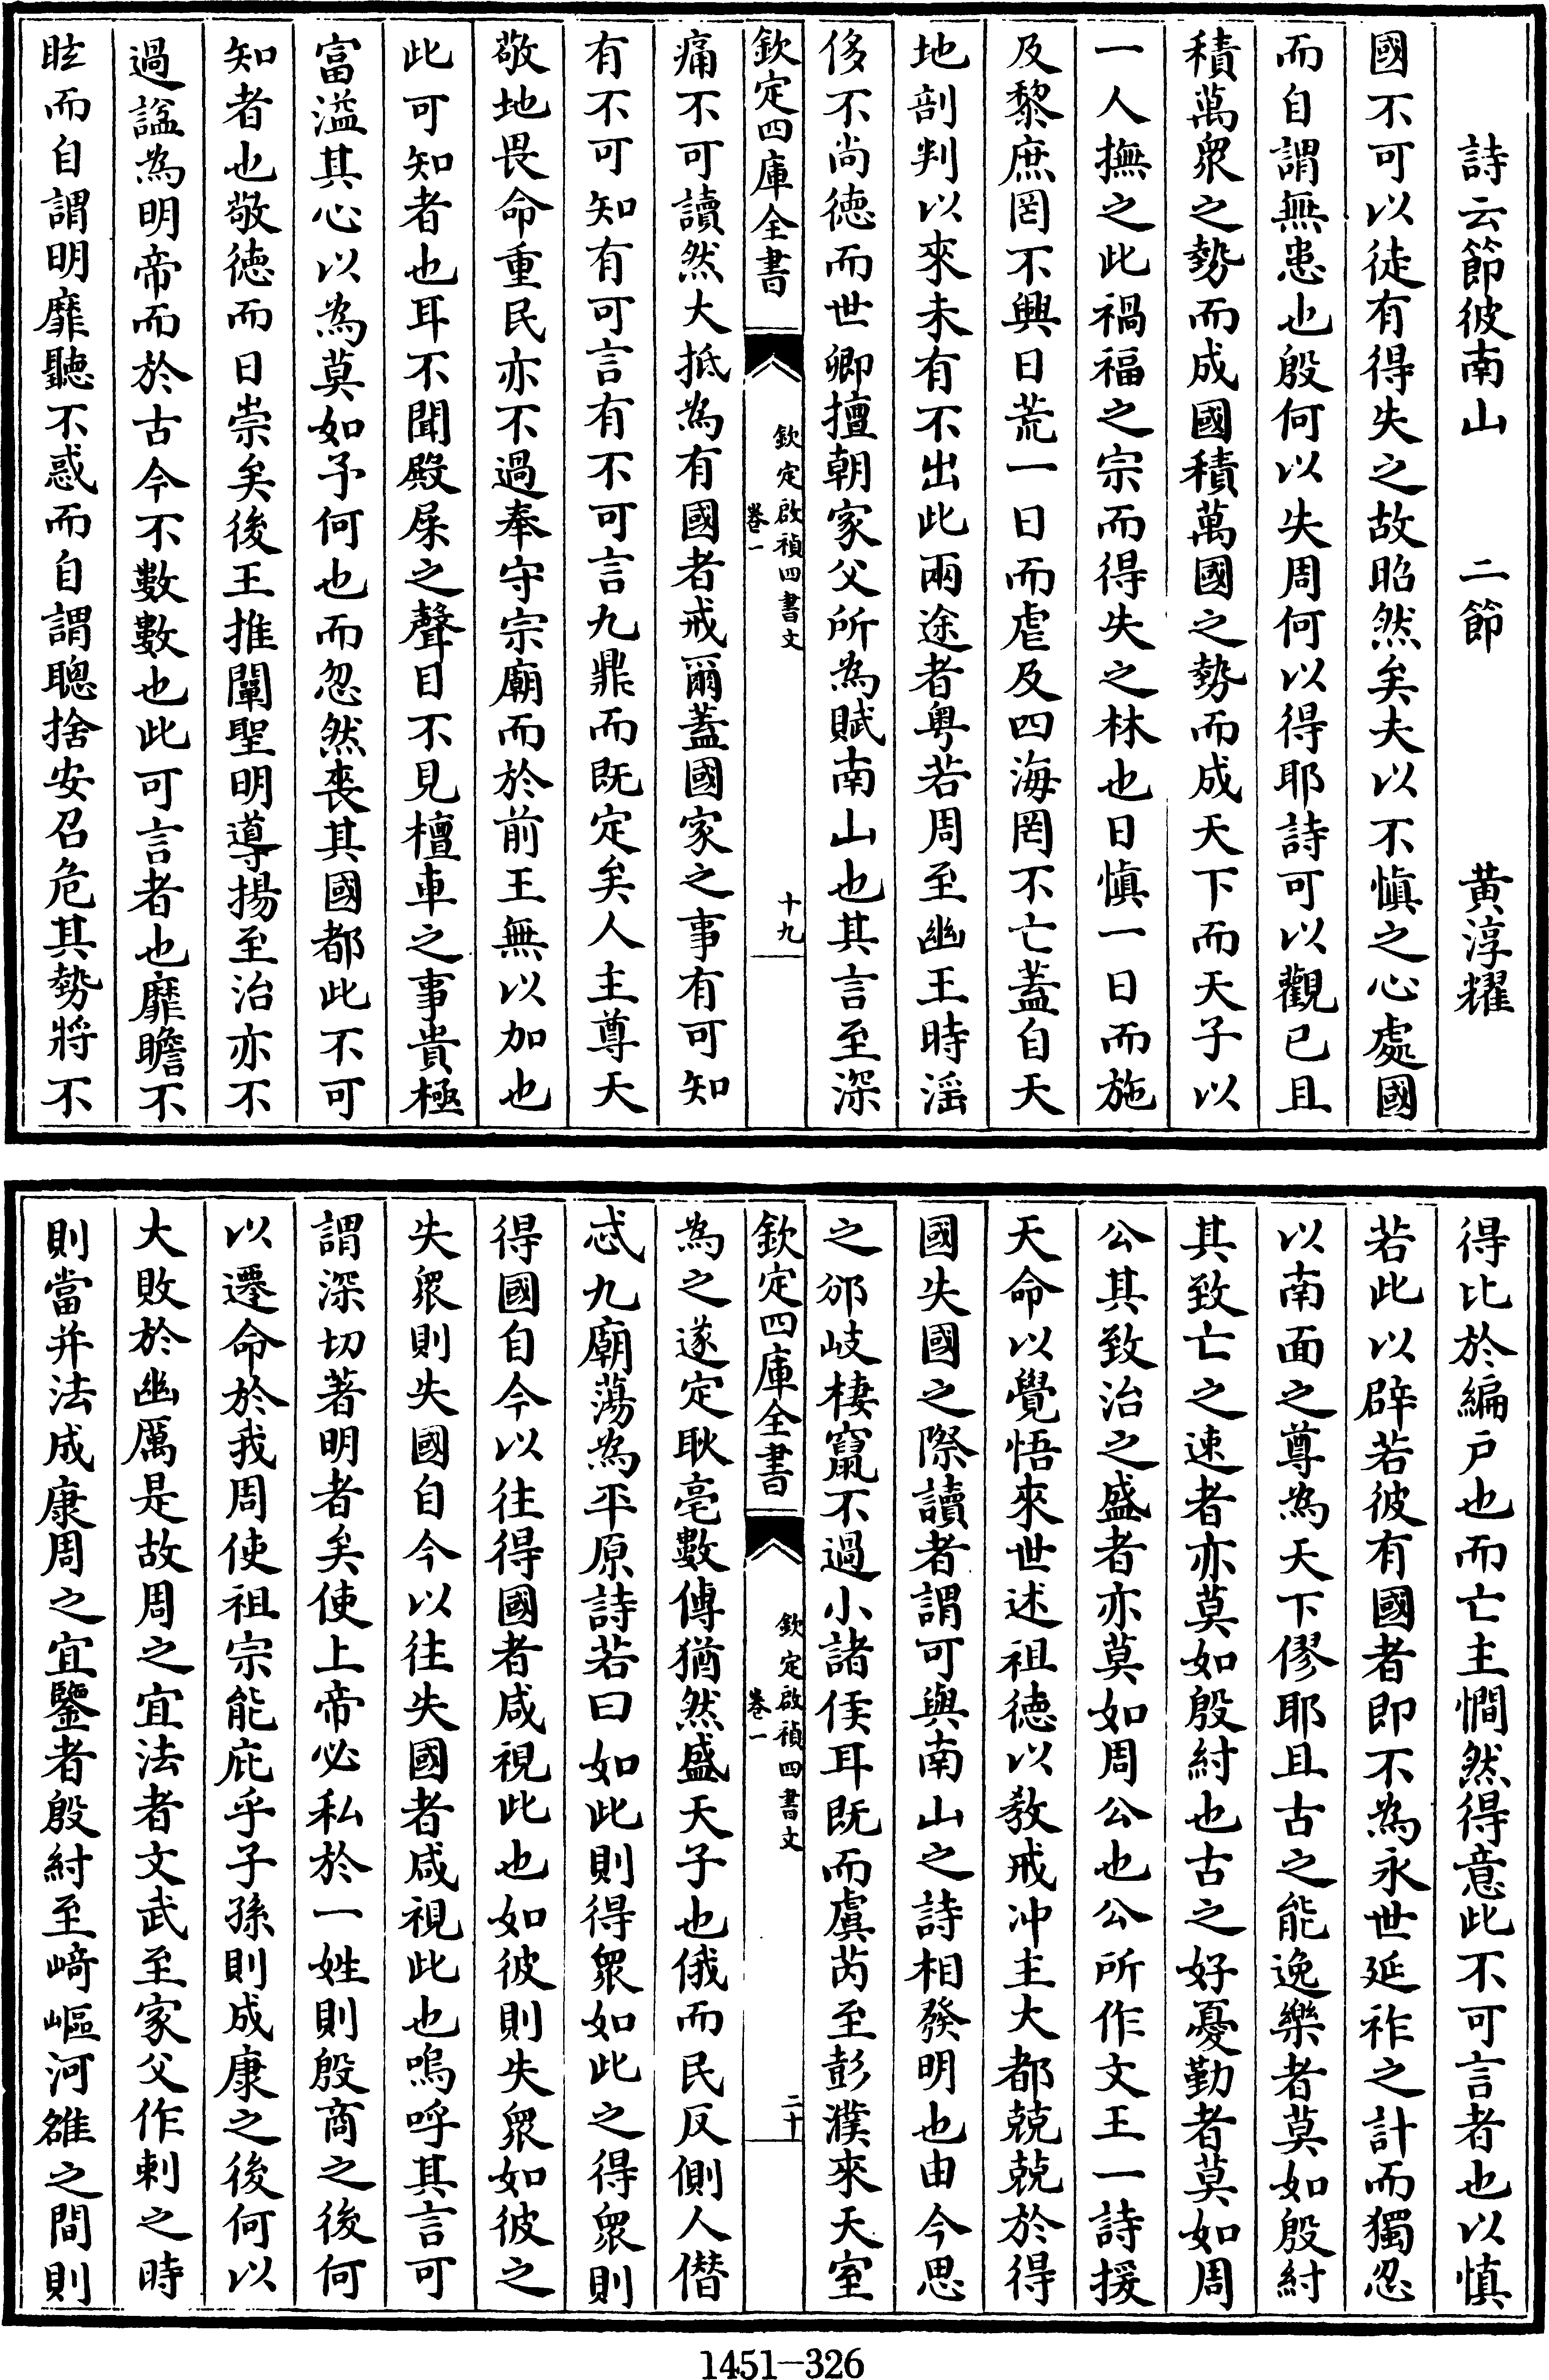 詩云節彼南山　二節　黄淳耀
國不可以徒有得失之故昭然矣夫以不慎之心處國
而自謂無患也殷何以失周何以得耶詩可以觀已且
積萬衆之勢而成國積萬國之勢而成天下而天子以
一人撫之此禍福之宗而得失之林也日慎一日而施
及黎庶罔不興日荒一日而虐及四海罔不亡蓋自天
地剖判以來未有不出此兩途者粤若周至幽王時滛
侈不尚徳而世卿擅朝家父所為賦南山也其言至深
欽定四庫全書　欽定啟禎四書文　卷一　十九
痛不可讀然大抵為有國者戒爾蓋國家之事有可知
有不可知有可言有不可言九鼎而既定矣人主尊天
敬地畏命重民亦不過奉守宗廟而於前王無以加也
此可知者也耳不聞殿屎之聲目不見檀車之事貴極
富溢其心以為莫如予何也而忽然喪其國都此不可
知者也敬徳而日崇矣後王推闡聖明導揚至治亦不
過諡為明帝而於古今不數數也此可言者也靡瞻不
眩而自謂明靡聽不惑而自謂聰捨安召危其勢將不
得比於編戸也而亡主憪然得意此不可言者也以慎
若此以辟若彼有國者即不為永世延祚之計而獨忍
以南面之尊為天下僇耶且古之能逸樂者莫如殷紂
其致亡之速者亦莫如殷紂也古之好憂勤者莫如周
公其致治之盛者亦莫如周公也公所作文王一詩援
天命以覺悟來世述祖徳以教戒冲主大都兢兢於得
國失國之際讀者謂可與南山之詩相發明也由今思
之邠岐棲竄不過小諸侯耳既而虞芮至彭濮來天室
欽定四庫全書　欽定啟禎四書文　卷一　二十
為之遂定耿亳數傳猶然盛天子也俄而民反側人僭
忒九廟蕩為平原詩若曰如此則得衆如此之得衆則
得國自今以往得國者咸視此也如彼則失衆如彼之
失衆則失國自今以往失國者咸視此也嗚呼其言可
謂深切著明者矣使上帝必私於一姓則殷商之後何
以遷命於我周使祖宗能庇乎子孫則成康之後何以
大敗於幽厲是故周之宜法者文武至家父作刺之時
則當并法成康周之宜鑒者殷紂至崎嶇河雒之間則
1451—326